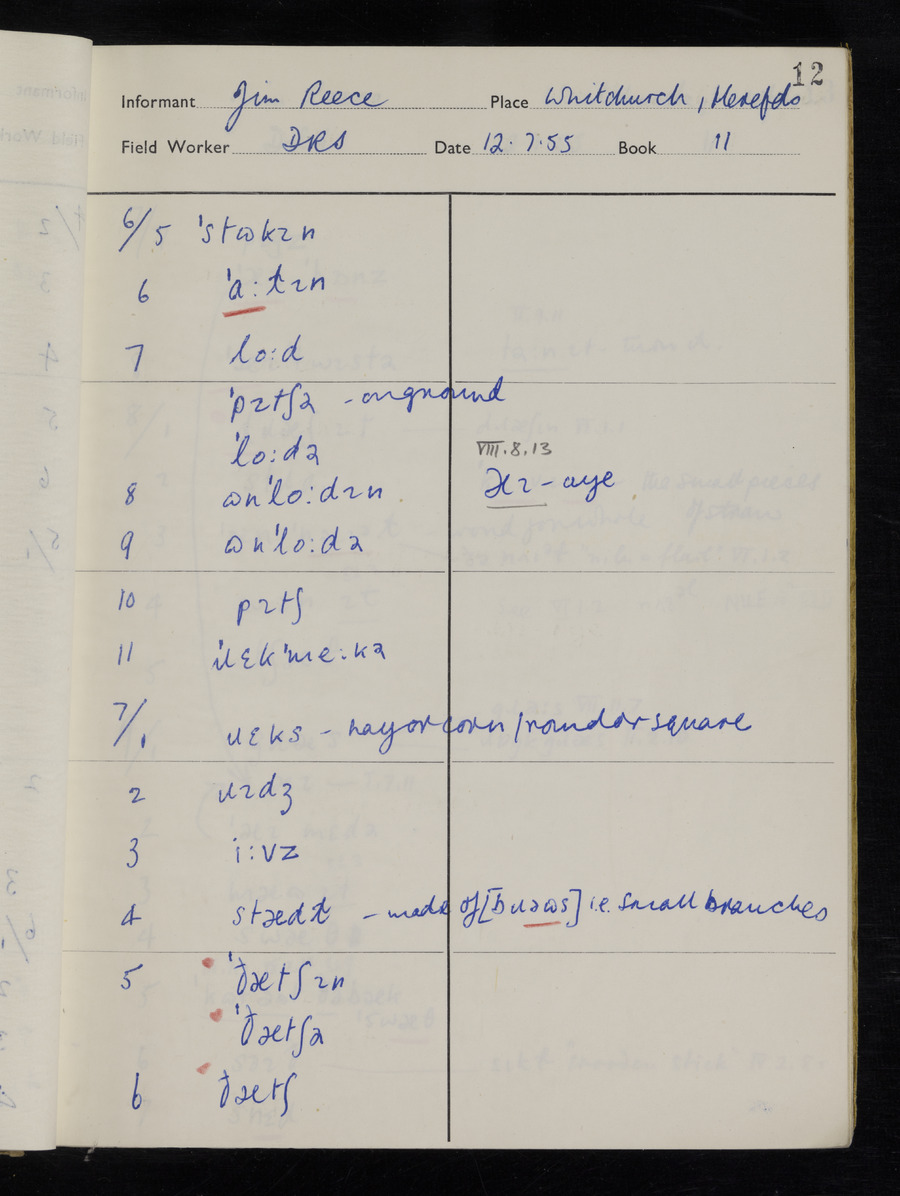 12
Informant Jim Reece Place Whitchurch, Herefds
Field Worker DRS Date 12.7.55 Book 11
6/5 ˈstɷkɪn
6 ˈɑ:tɪn
7 lo:d
ˈpɪtʃə - on ground
ˈlo:də VIII.8.13
8 ɷnˈlo:dɪn əɪ - aye
9 ɷnˈlo:də
10 pɪtʃ
11 ˈɹɛkˈme:kə
7/1 ɹɛks - hay or corn / round or square
2 ɹɪdʒ
3 i:vz
4 stædt - made of [bɹəɷs] i.e. small branches
5 ˈðætʃɪn
ˈðætʃə
6 ðætʃ